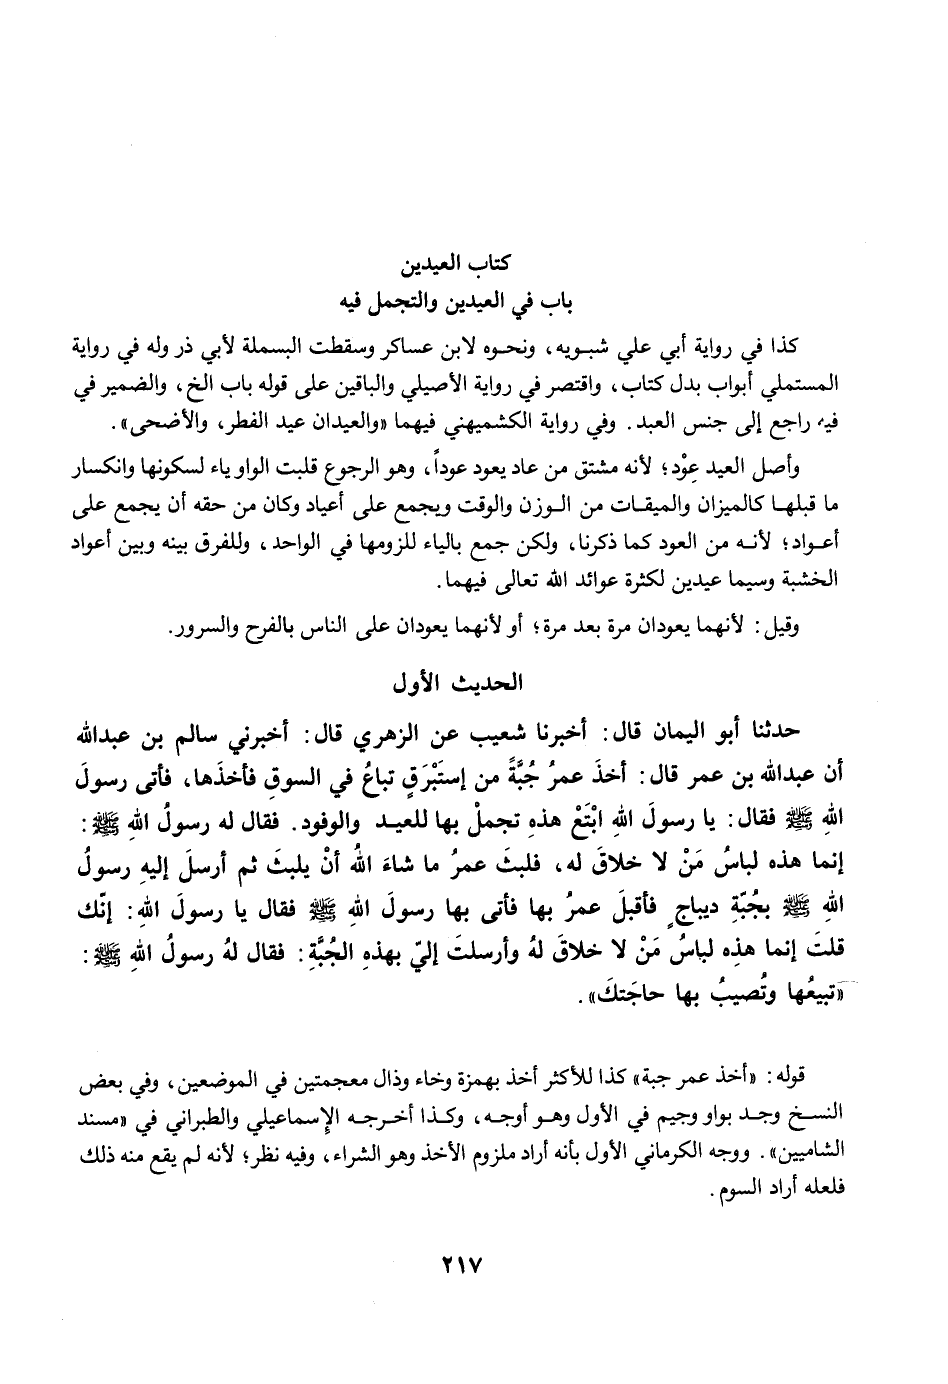 كتاب العيدين
باب في العيدين والتجمل فيه
كذا في رواية أبي علي شبويه، ونحوه لابن عساكر وسقطت البسملة لأبي ذر وله في رواية
المستملي أبواب بدل كتاب، واقتصر في رواية الأصيلي والباقين على قوله باب الخ، والضمير في
فيه راجع إلى جنس العبد. وفي رواية الكشميهني فيهما «والعيدان عيد الفطر، والأضحى».
وأصل العيد عِوْد؛ لأنه مشتق من عاد يعود عوداً، وهو الرجوع قلبت الواو ياء لسكونها وانكسار
ما قبلها كالميزان والميقات من الوزن والوقت ويجمع على أعياد وكان من حقه أن يجمع على
أعواد؛ لأنه من العود كما ذكرنا، ولكن جمع بالياء للزومها في الواحد، وللفرق بينه وبين أعواد
الخشبة وسيما عيدين لكثرة عوائد الله تعالى فيهما.
وقيل: لأنهما يعودان مرة بعد مرة؛ أو لأنهما يعودان على الناس بالفرح والسرور.
الحديث الأول
حدثنا أبو اليمان قال: أخبرنا شعيب عن الزهري قال: أخبرني سالم بن عبدالله
أن عبدالله بن عمر قال: أخذَ عمرُ جُبَّةً من إستَبْرَقٍ تباعُ في السوقِ فأخذَها، فأتى رسولَ
اللهِ ﷺ فقال: يا رسولَ اللهِ ابْتَعْ هذهِ تجملْ بها للعيد والوفود. فقال له رسولُ اللهِ ﷺ:
إنما هذه لباسُ مَنْ لا خلاقَ له، فلبثَ عمرُ ما شاءَ اللهُ أنْ يلبثَ ثم أرسلَ إليهِ رسولُ
اللهِ ﷺ بجُبَّةِ ديباجٍ فأقبلَ عمرُ بها فأتى بها رسولَ اللهِ ﷺ فقال يا رسولَ اللهِ: إنّك
قلتَ إنما هذِه لباسُ مَنْ لا خلاقَ لهُ وأرسلتَ إليّ بهذهِ الجُبَّةِ: فقال لهُ رسولُ اللهِ ﷺ:
«تبيعُها وتُصيبُ بها حاجَتكَ».
قوله: «أخذ عمر جبة» كذا للأكثر أخذ بهمزة وخاء وذال معجمتين في الموضعين، وفي بعض
النسخ وجد بواو وجيم في الأول وهو أوجه، وكذا أخرجه الإسماعيلي والطبراني في «مسند
الشاميين». ووجه الكرماني الأول بأنه أراد ملزوم الأخذ وهو الشراء، وفيه نظر؛ لأنه لم يقع منه ذلك
فلعله أراد السوم.
٢١٧